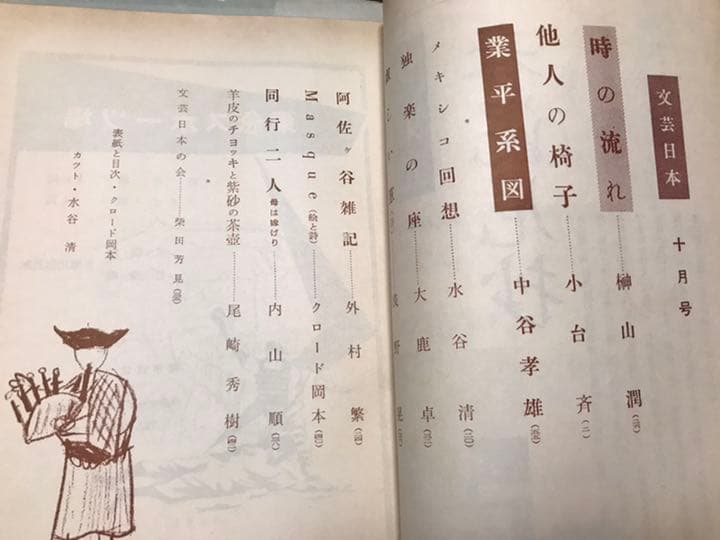 文芸日本
十月号
時の流れ……榊山潤(三六)
他人の椅子……小台斉(二)
業平系図……中谷孝雄(五五)
メキシコ回想……水谷清(三〇)
独楽の座……大鹿卓(三三)
阿佐ヶ谷雑記……外村繁(二四)
Masque(絵と詩)……クロード岡本(四〇)
同行二人 母は嫁げり……内山順(二八)
羊皮のチョッキと紫砂の茶壺……尾崎秀樹
文芸日本の会……榮田芳晃
表紙と目次・クロード岡本
カット・水谷清